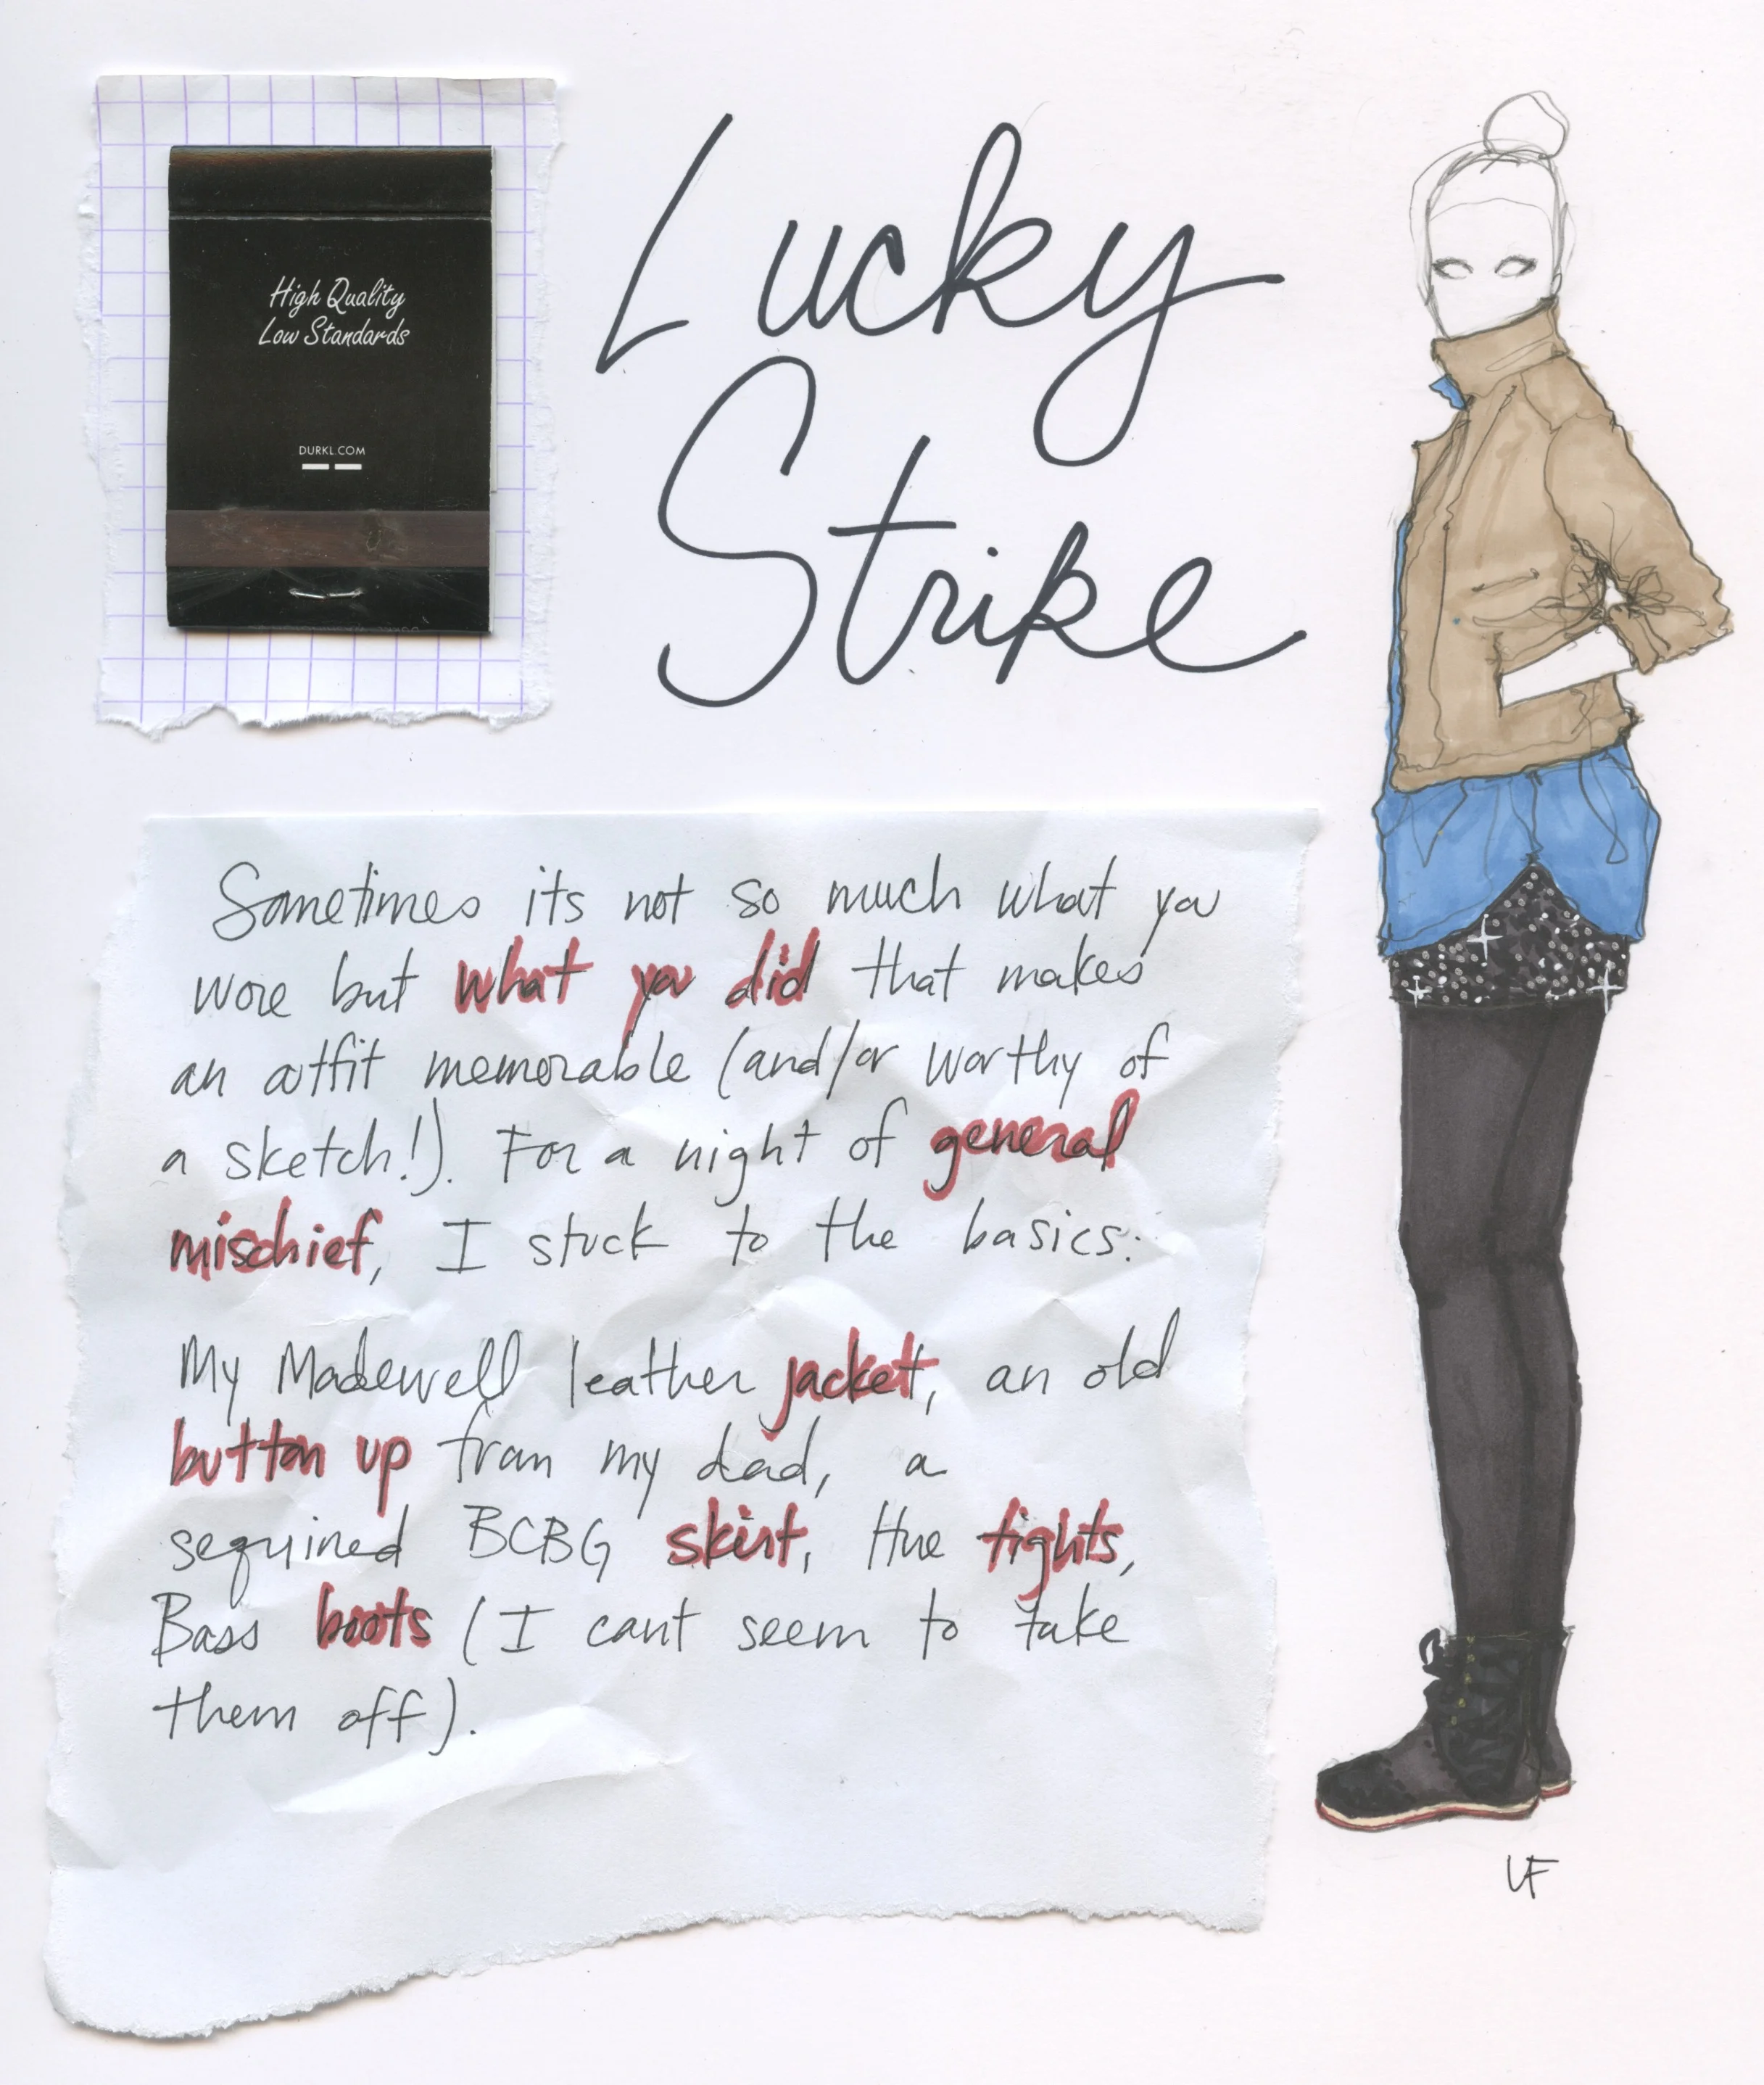 High Quality
Low Standards
DURKL.COM
Lucky
Strike
Sometimes its not so much what you
wore but what you did that makes
an outfit memorable (and/or worthy of
a sketch!). For a night of general
mischief, I stuck to the basics:
My Madewell leather jacket, an old
button up from my dad, a
sequined BCBG skirt, Hue tights,
Bass boots (I cant seem to take
them off).
LF